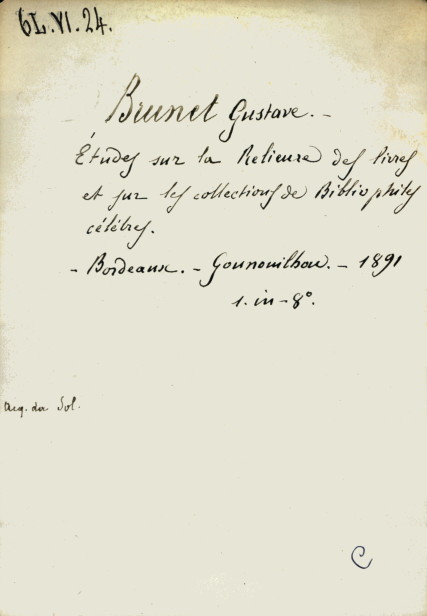 6L.VI.24.
Brunet Gustave. -
Études sur la Relieure des livres
et sur les collections de Bibliophiles
célébres.
- Bordeaux. - Gounouilhou. - 1891
1. in-8°.
Acq. du Sol.
C